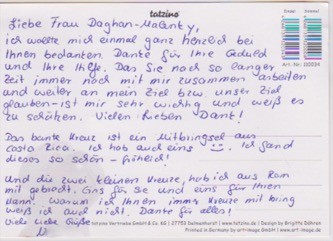 tatzino
Liebe Frau Daghan-Malenty,
ich wollte mich einmal ganz herzlich bei
Ihnen bedanken. Danke für Ihre Geduld
und Ihre Hilfe. Das Sie nach so langer
Zeit immer noch mit mir zusammen arbeiten
und weiter an mein Ziel bzw. unser Ziel
glauben - ist mir sehr wichtig und weiß es
zu schätzen. Vielen lieben Dank!
Das bunte Kreuz ist ein Mitbringsel aus
Costa Rica. Ich hab auch eins. Ich fand
dieses so schön - fröhlich!
Und die zwei kleinen Kreuze, hab ich aus Rom
mit gebracht. Eins für Sie und eins für Ihren
Mann. Warum ich Ihnen immer Kreuze mit bring
weiß ich auch nicht. Danke für alles!
Viele liebe Grüße
tatzino Vertriebs GmbH & Co. KG | 27753 Delmenhorst | www.tatzino.de | Design by Brigitte Dahnen
Printed in Germany by art+image GmbH | www.art-image.de